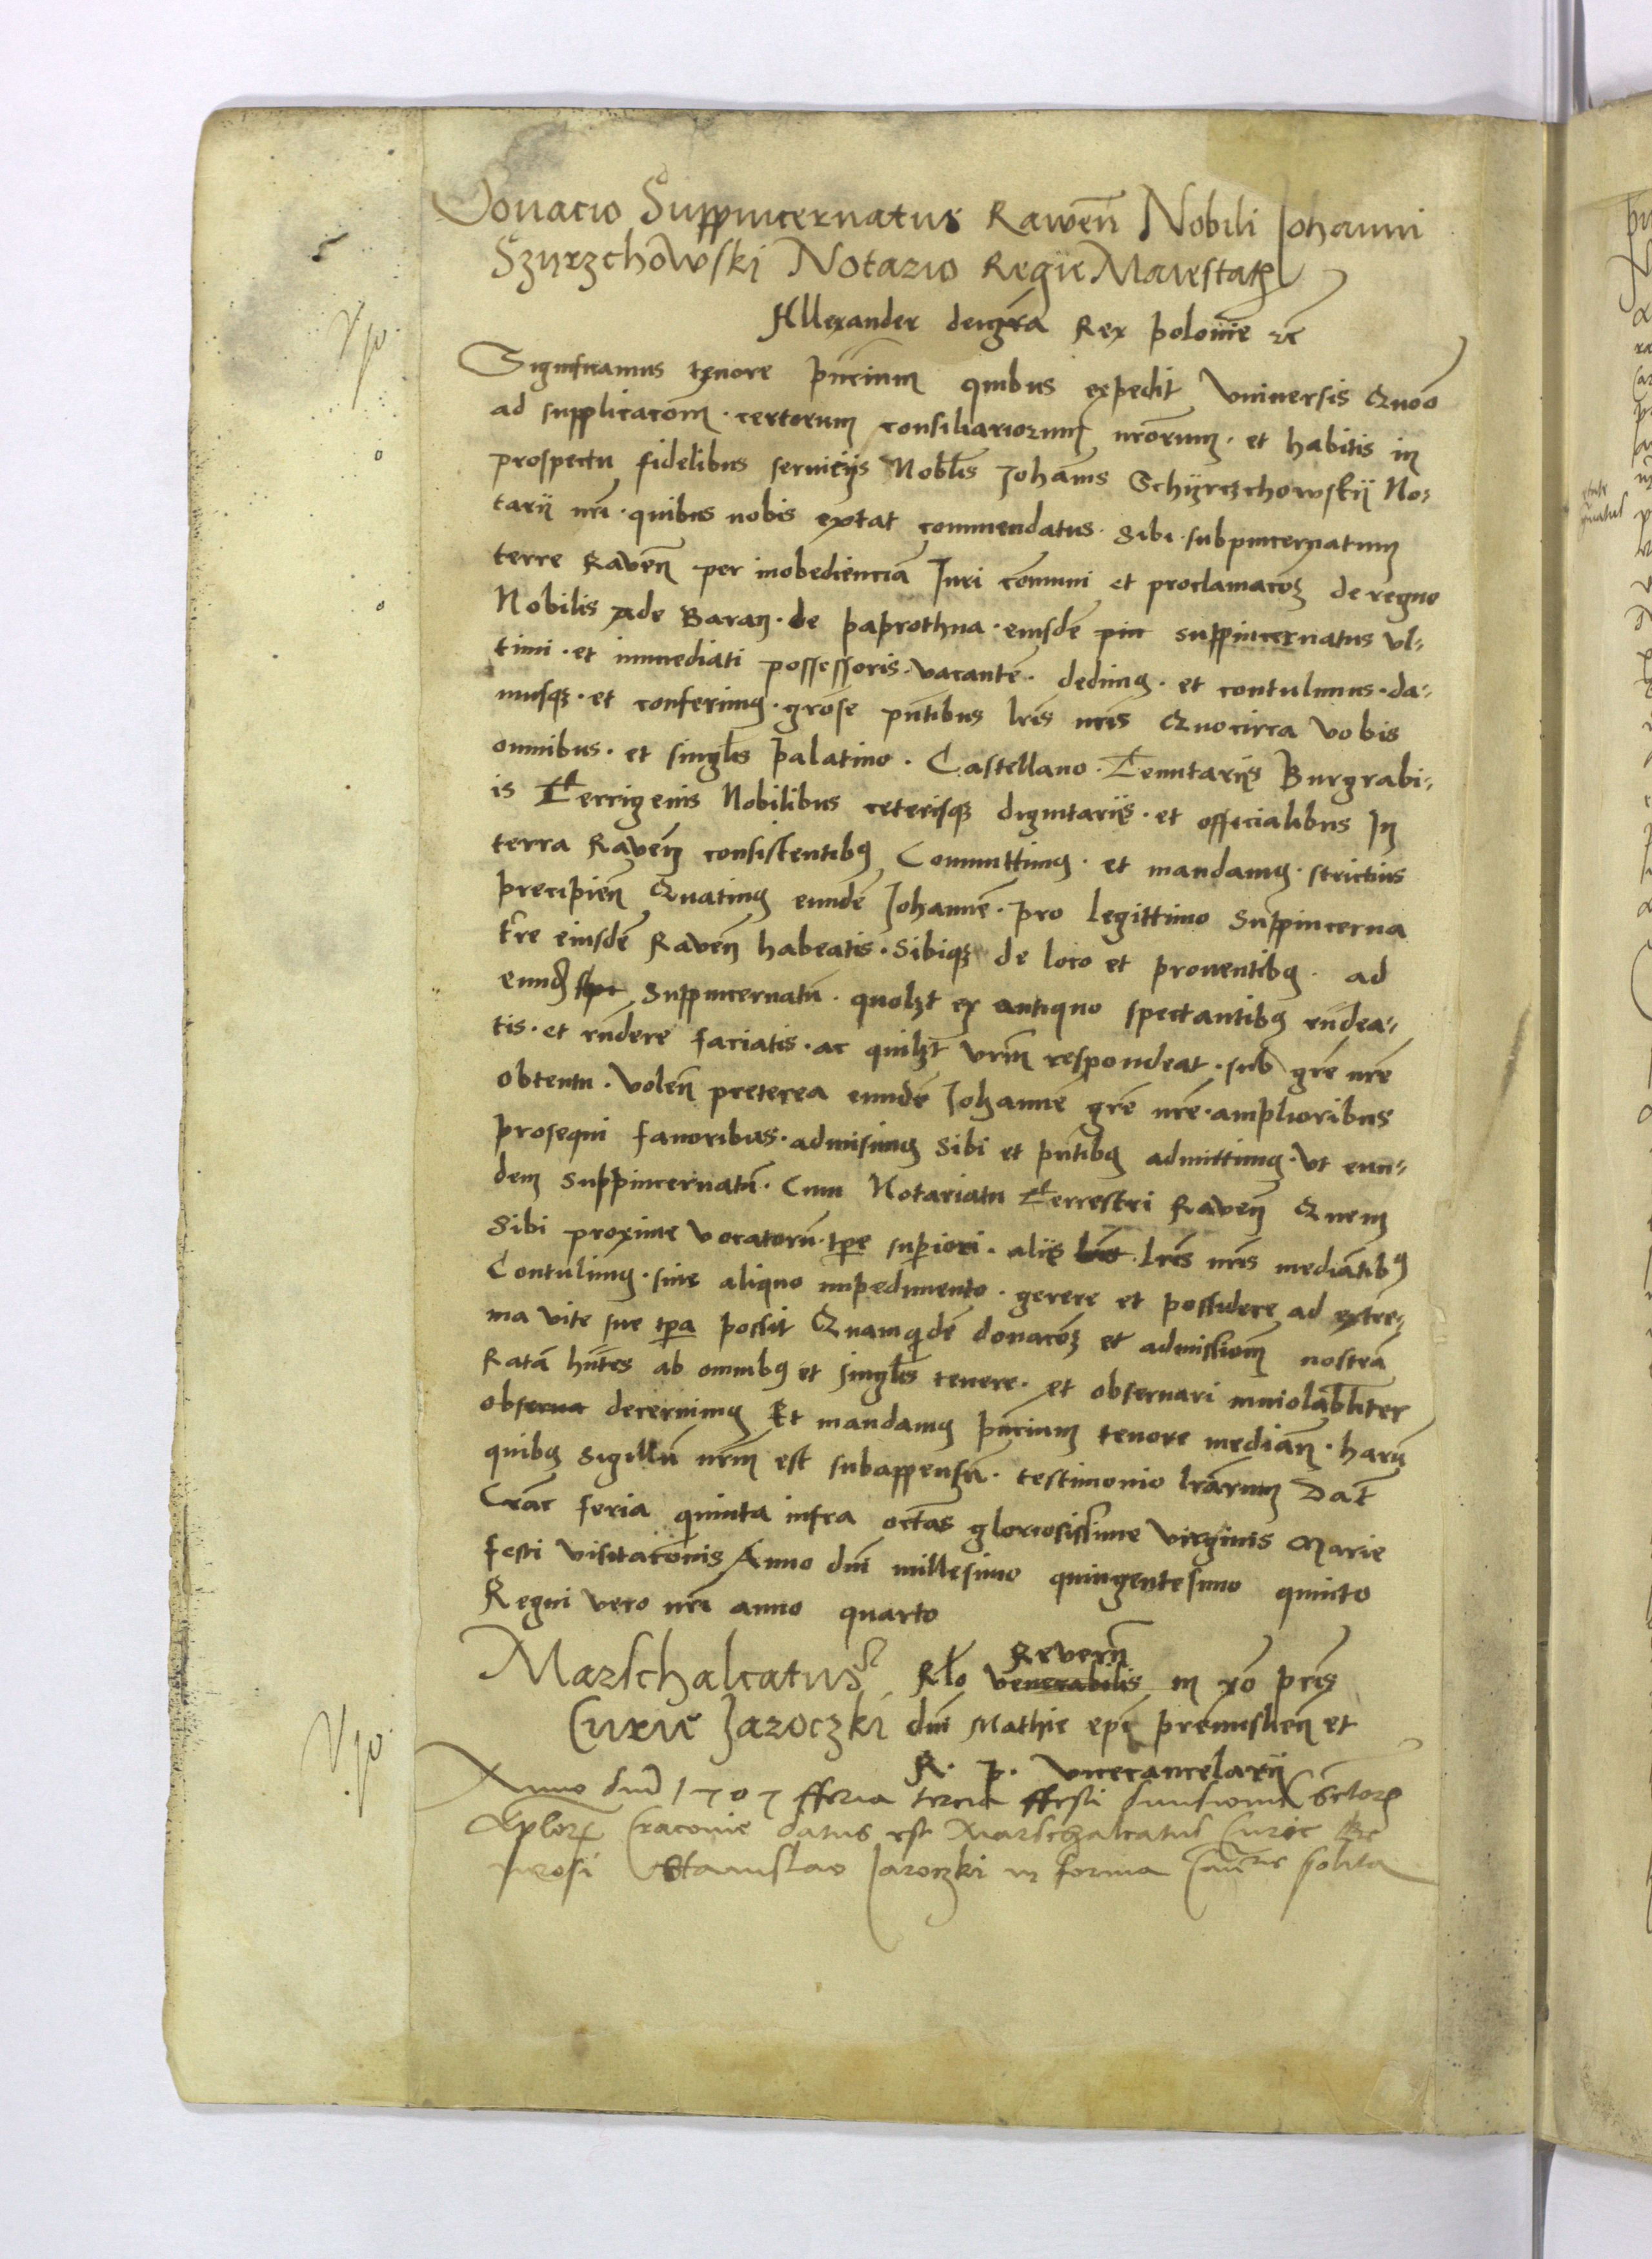 Donacio Suppincernatus Rawen̄ Nobili Johanni
Szyrzchowski Notario Regie Maiestatꝭ
Allexander dei gr̄a Rex polonie ⁊c̄
Significamus tenore pn̄cium quibus expedit Vniversis Quod
ad supplicacōm · certorum consiliariorum nr̄orum · et habitis in
prospectu fidelibus serviciis Nobl̄is Johānis Schyrczchowskij No-
tarij nr̄i · quibus nobis extat commendatus · Sibi subpincernatum
terre Raven̄ per inobedienciā Juri cōmuni et proclamacōꝫ de regno
Nobilis Ade Baran · de paprothna · eiusdē pin suppincernatus vl-
timi · et immediati possessoris · vacantē · dedimꝰ · et contulimus · da-
musqꝫ · et conferimꝰ · grōse pn̄tibus lr̄is nr̄is Quocirca vobis
omnibus · et singl̄is palatino · Castellano · Tenutarijs Burgrabi-
is Terrigenis Nobilibus ceterisqꝫ dignitarijs · et officialibus In
terra Raven̄ consistentibꝰ Committimꝰ · et mandamꝰ · strictius
precipien̄ Quatinꝰ eundē Johannē · pro legittimo Suppincerna
tr̄e eiusdē Raven̄ habeatis · Sibiqꝫ de loco et proventibꝰ · ad
eundē spc suppincernatū · quolꝫt ex antiquo spectantibꝰ rn̄dea-
tis · et rn̄dere faciatis · ac quilꝫt vrm̄ respondeat · sub gr̄e nr̄e
obtentu · Volen̄ preterea eundē Johannē gr̄e nr̄e · amplioribus
prosequi favoribus · admisimꝰ Sibi et pn̄tibꝰ admittimꝰ · Vt eun-
dem Suppincernatū · Cum Notariatu Terrestri Raven̄ Quem
Sibi proxime vocatorū · tꝑe supiori · aliis lr̄is lr̄is nr̄is mediātibꝰ
Contulimꝰ · sine aliquo impedimento · gerere et possidere ad extre-
ma vite sue tꝑa possit Quamqͥdē donacōꝫ et admissionꝫ nostrā
Ratā hn̄tes ab omnibꝰ et singl̄is tenere · et observari inviolabl̄iter
observa decernimꝰ Et mandamꝰ pn̄cium tenore median̄ · harū
quibꝰ sigillū nr̄m est subappensū · testimonio lr̄arum Dat̄
Crac̄ feria quinta infra octās gloriosissime virginis Marie
festi visitacōnis Anno dn̄i millesimo quingentesimo quinto
Regni vero nr̄i anno quarto
Marschalcatus
Rl̄o venerabilis in xō pr̄is
Reveren̄
Curie Jaroczki
dn̄i Mathie epī premislien̄ et
R. p. vicecancelarij
Anno dn̄i 1505 fferia tercia ffesti divisionis Sctorꝝ
Apl̄orꝝ Cracovie datus est Marschalcatus Curie Ge
nerosi Stanislao Jaroczki in forma Canc̄rie solita